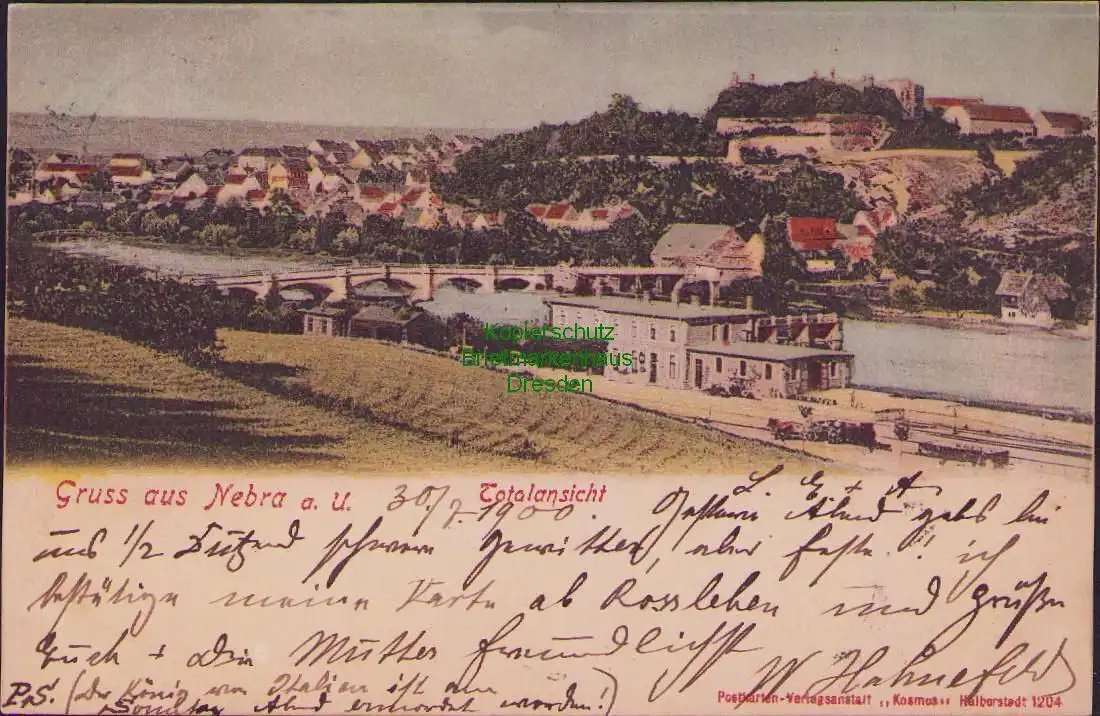 Kopierschutz
Briefmarkenhaus
Dresden
Gruss aus Nebra a. U. 30./7. 1900. Totalansicht
L. E + A
Gestern Abend gabs bei
uns 1/2 Dutzend schwere Gewitter, aber feste!! ich
bestätige meine Karte ab Rossleben und grüße
Euch + die Mutter freundlichst
W Hahnefeld
P.S! (der König von Italien ist am
Sonntag Abend ermordet worden!)
Postkarten-Verlagsanstalt „Kosmos“ Halberstadt 1204